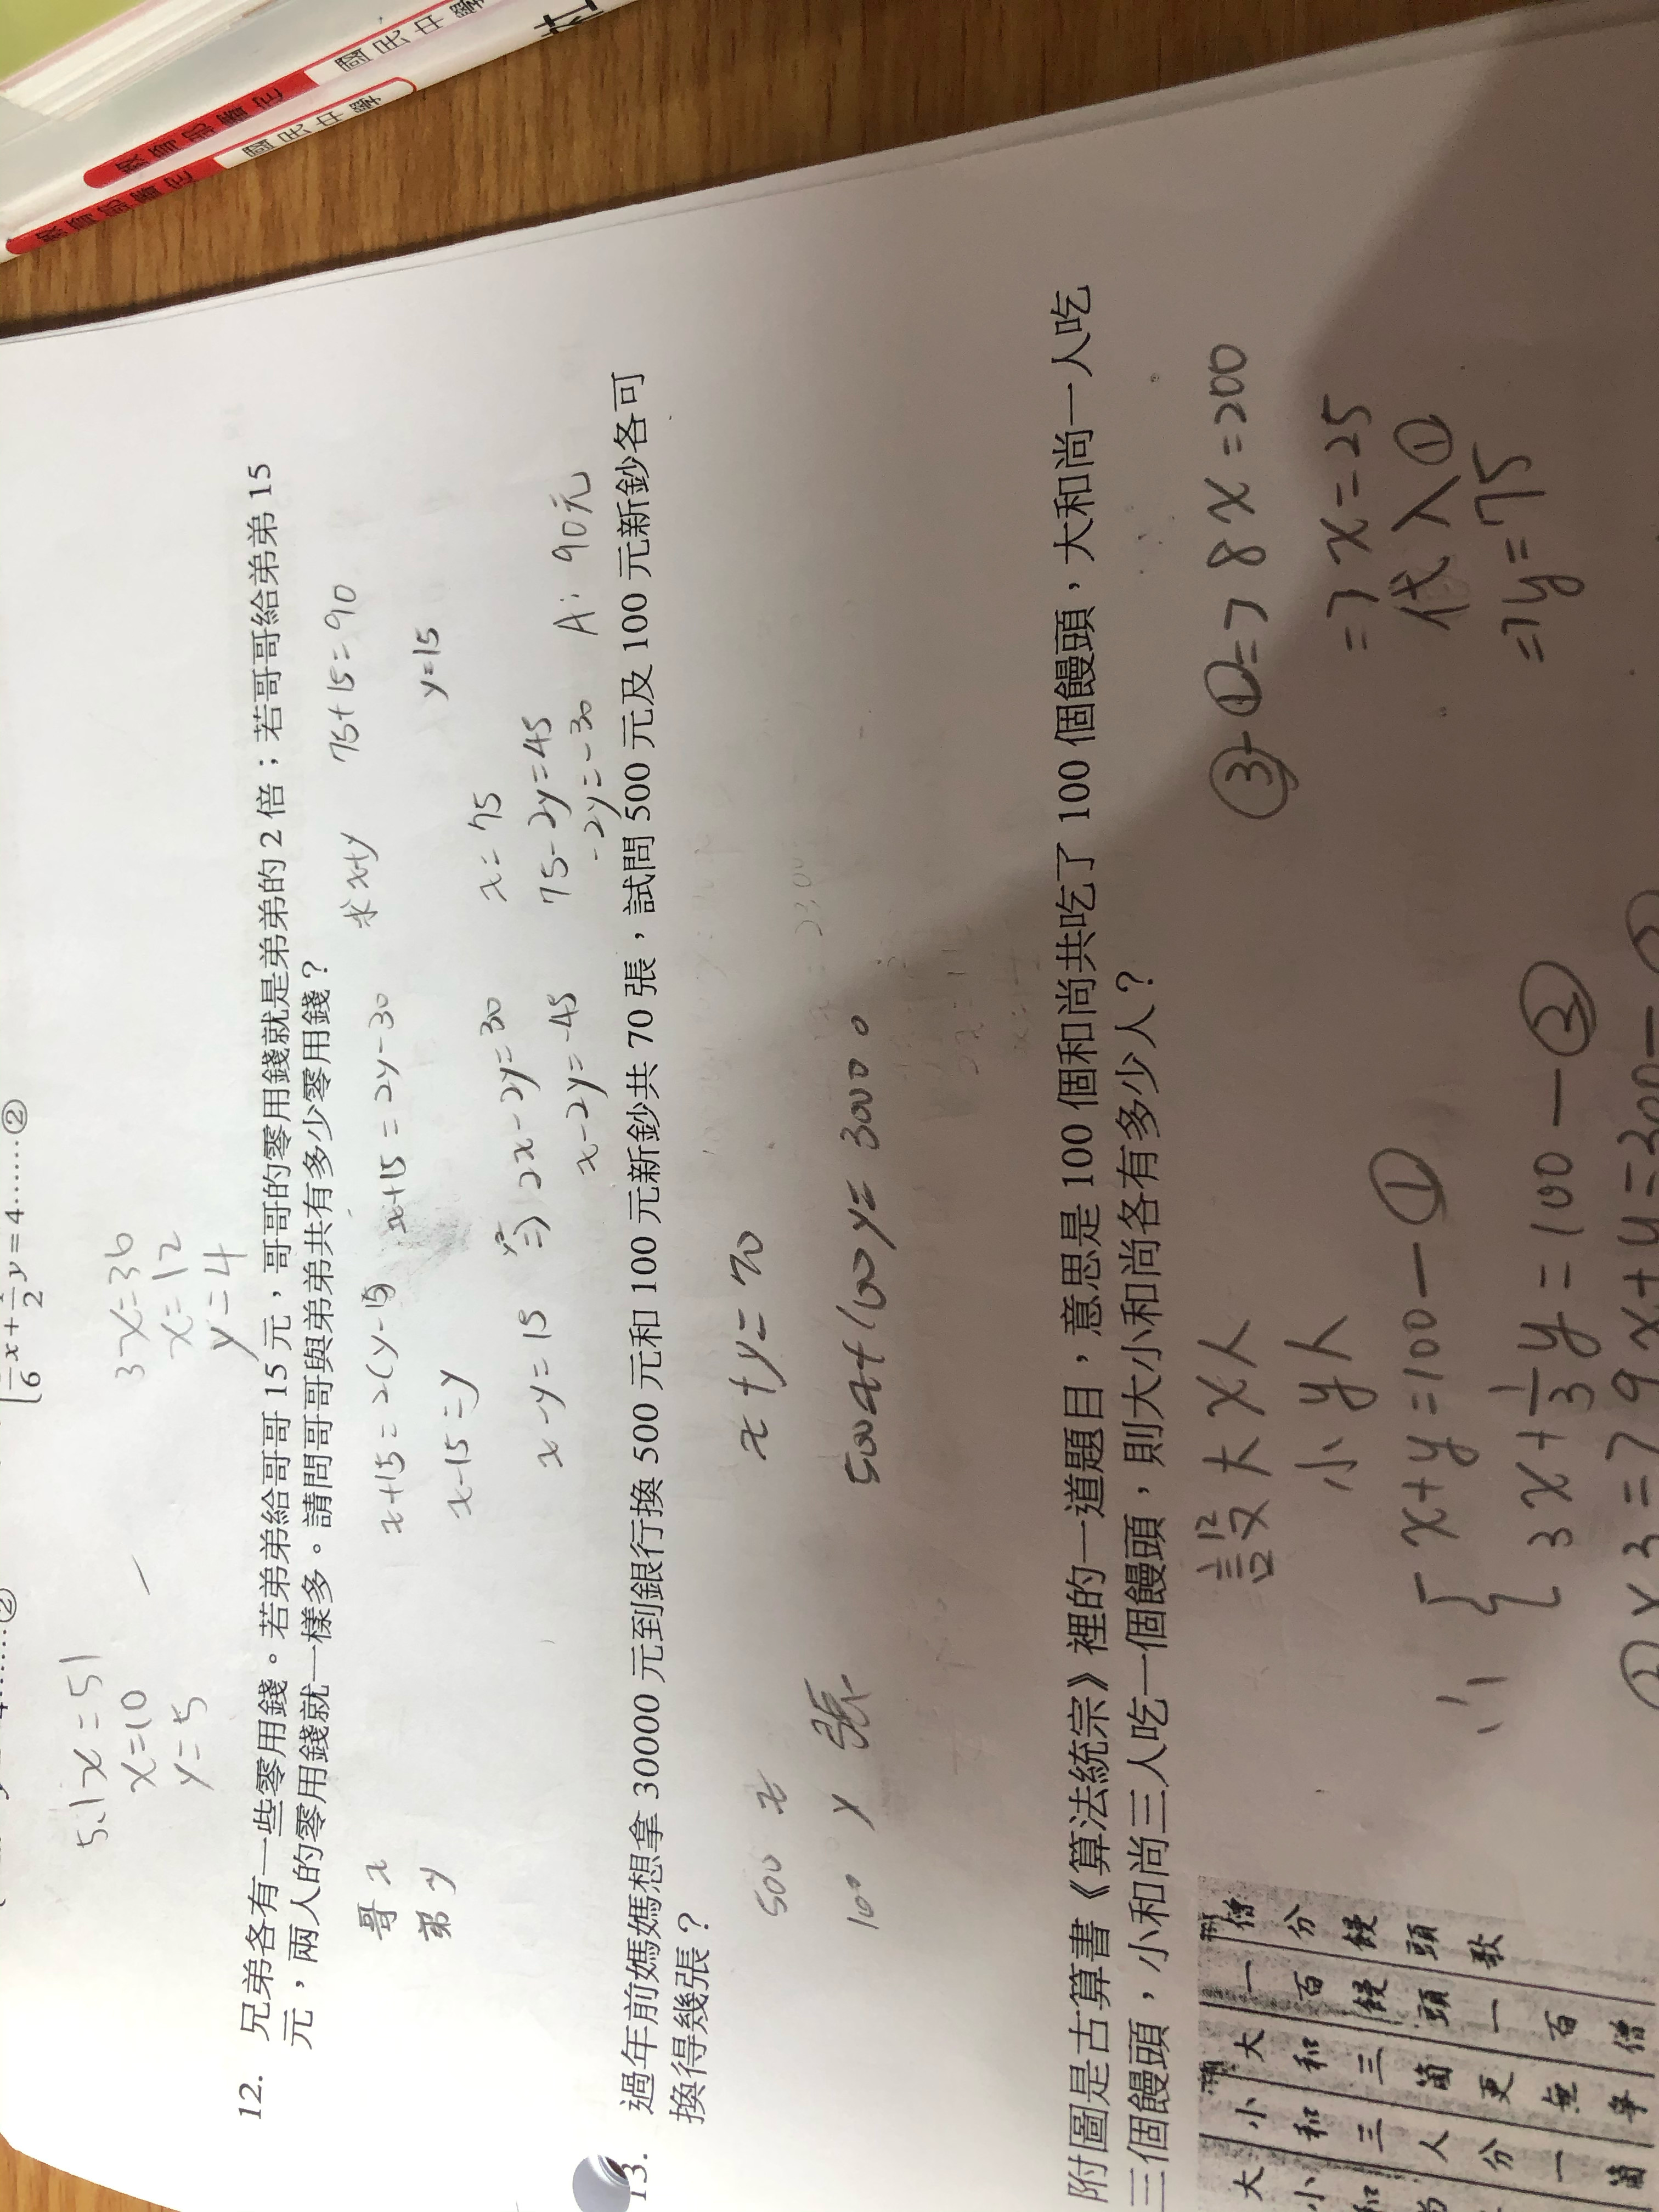 教育部審定
國民中學
教育部審定
國民中學
1/6 x + 1/2 y = 4……②
3x=36
x=12
y=4
5.1x=51
x=10
y=5
12. 兄弟各有一些零用錢。若弟弟給哥哥 15 元，哥哥的零用錢就是弟弟的 2 倍；若哥哥給弟弟 15
元，兩人的零用錢就一樣多。請問哥哥與弟弟共有多少零用錢？
哥 x
弟 y
x+15=2(y-15)
x+15=2y-30
求 x+y
75+15=90
x-15=y
y=15
x-y=15
2x-2y=30
x-2y=-45
x=75
75-2y=45
-2y=-30
A: 90元
13. 過年前媽媽想拿 30000 元到銀行換 500 元和 100 元新鈔共 70 張，試問 500 元及 100 元新鈔各可
換得幾張？
500 x
100 y 張
x+y=70
500x+100y=30000
附圖是古算書《算法統宗》裡的一道題目，意思是 100 個和尚共吃了 100 個饅頭，大和尚一人吃
三個饅頭，小和尚三人吃一個饅頭，則大小和尚各有多少人？
設大x人
小y人
x+y=100—①
3x+1/3y=100—②
x3=>9x+y=300—
③-①=>8x=200
=>x=25
代入①
=>y=75
僧分饅頭歌
一百饅頭一百僧
大和三箇更無爭
小和三人分一箇
大小和